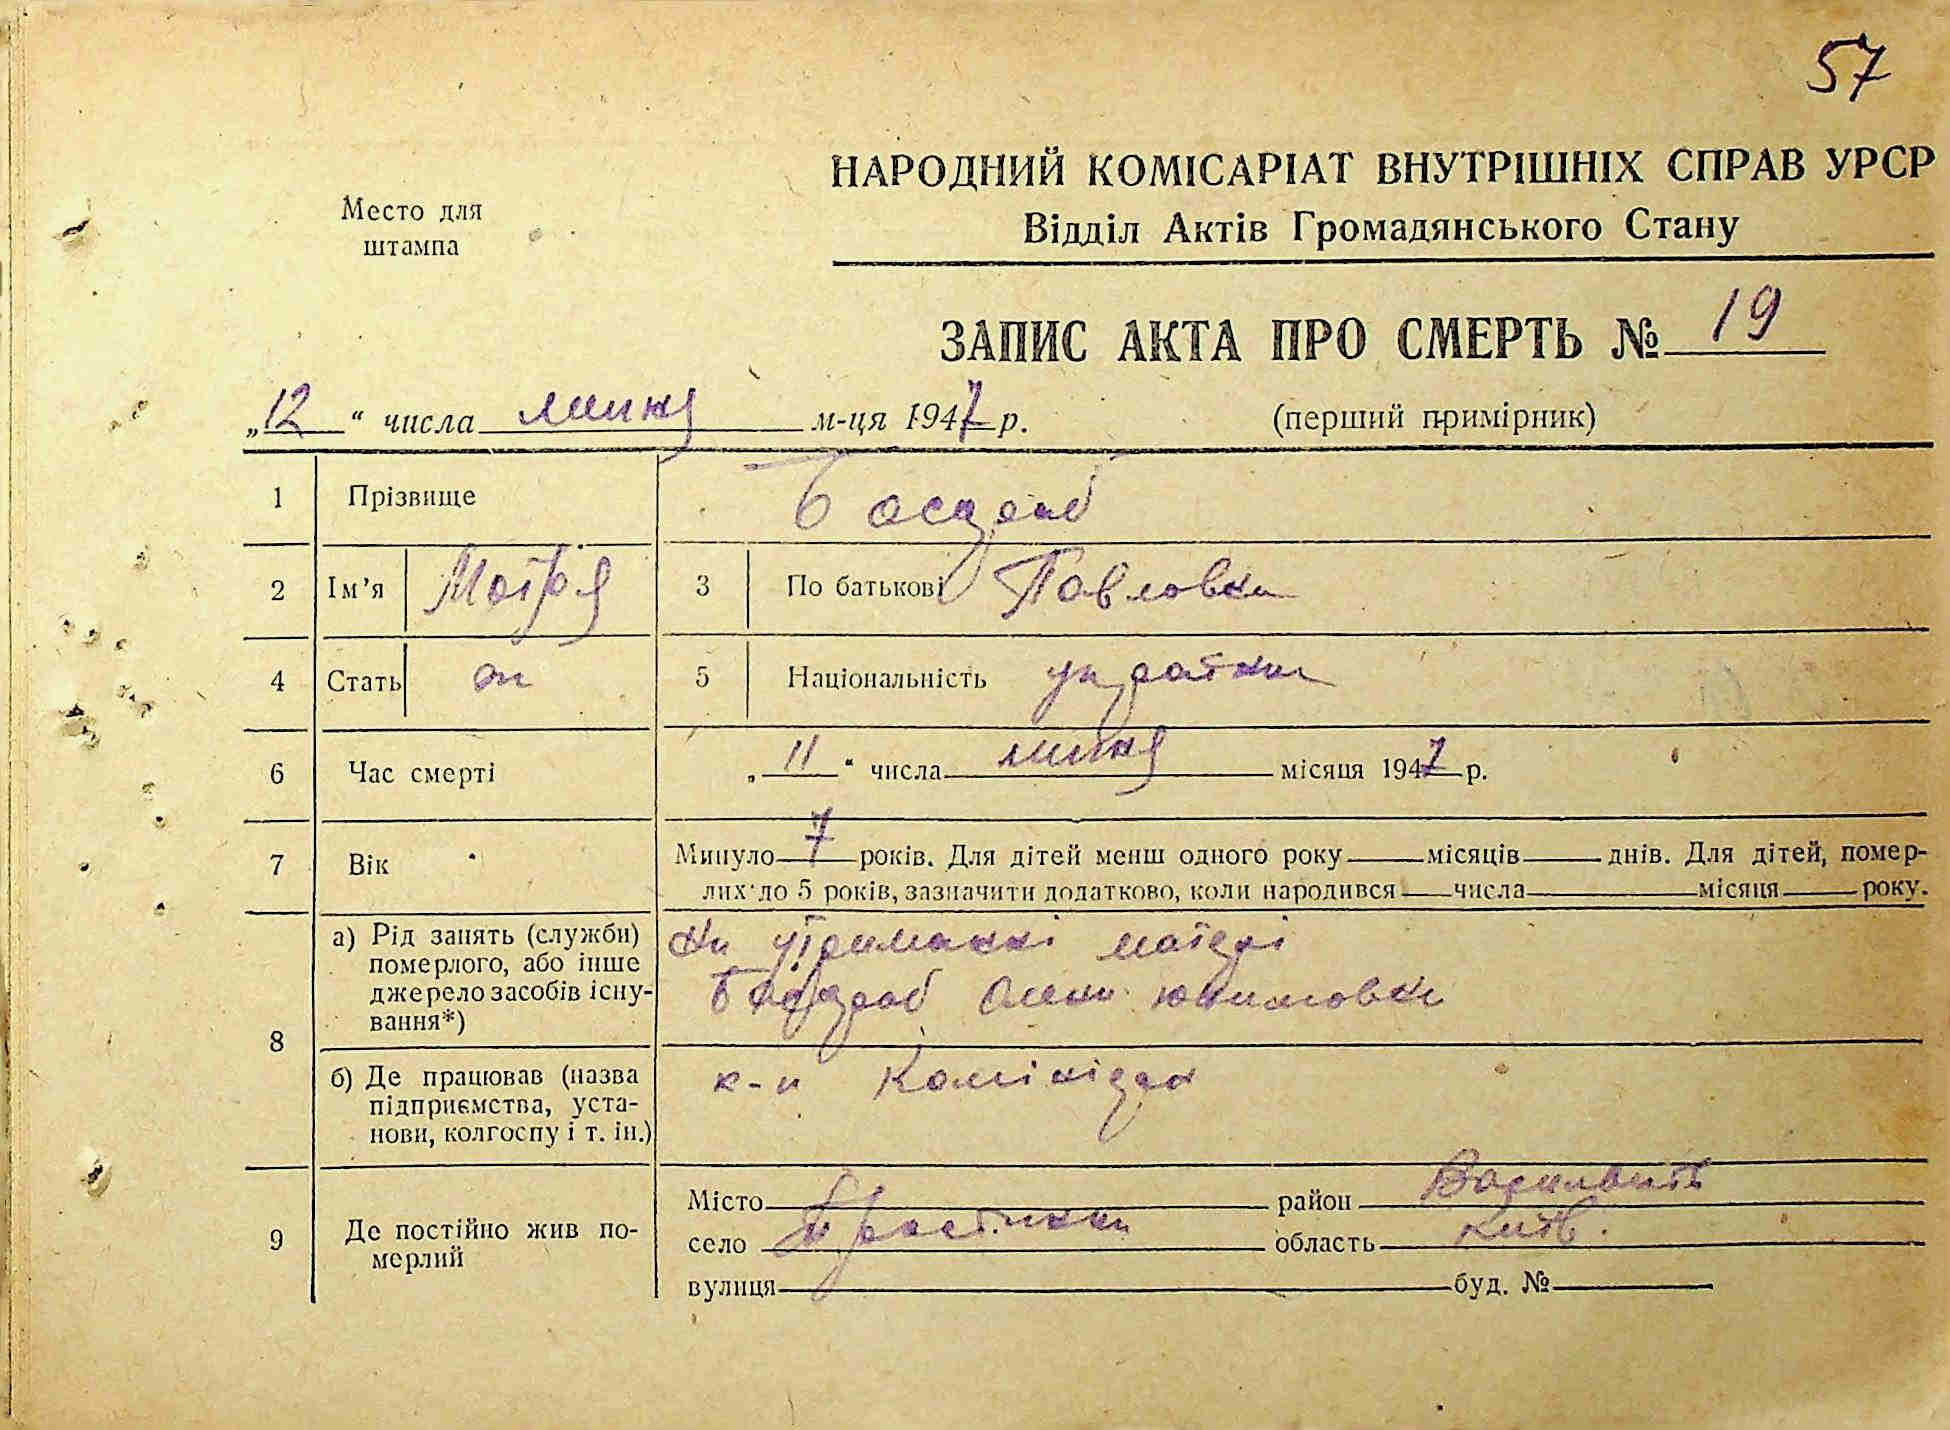 57
Место для
штампа
НАРОДНИЙ КОМІСАРІАТ ВНУТРІШНІХ СПРАВ УРСР
Відділ Актів Громадянського Стану
ЗАПИС АКТА ПРО СМЕРТЬ № 19
„12“ числа липня м-ця 1947 р. (перший примірник)
1 Прізвище
2 Ім’я Мотря 3 По батькові Павловна
4 Стать 5 Національність українка
6 Час смерті „11“ числа липня місяця 1947 р.
7 Вік Минуло 7 років. Для дітей менш одного року місяців днів. Для дітей, помер-
лих до 5 років, зазначити додатково, коли народився числа місяця року.
8 а) Рід занять (служби) померлого, або інше джерело засобів існу-вання*) На утриманні матері
Олени Юхимовни
б) Де працював (назва підприємства, уста-нови, колгоспу і т. ін.) к-п
9 Де постійно жив по-мерлий Місто район Васильків
село область Київ.
вулиця буд. №